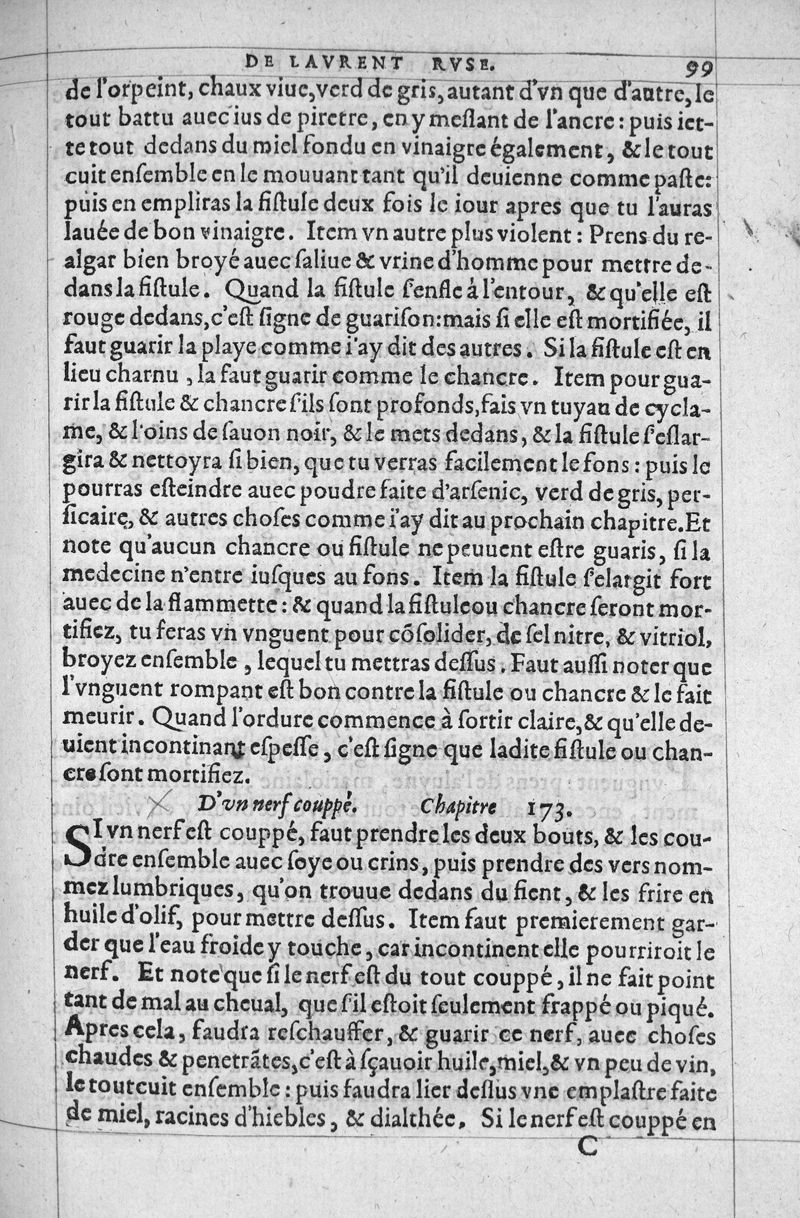 DE LAVRENT RVSE. 99
de l'orpeint, chaux viue, verd de gris, autant d'vn que d'autre, le
tout battu auec ius de piretre, en y meſlant de l'ancre: puis iet-
te tout dedans du miel fondu en vinaigre également, & le tout
cuit enſemble en le mouuant tant qu'il deuienne comme paſte:
puis en empliras la fiſtule deux fois le iour apres que tu l'auras
lauée de bon vinaigre. Item vn autre plus violent: Prens du re-
algar bien broyé auec ſaliue & vrine d'homme pour mettre de-
dans la fiſtule. Quand la fiſtule ſenfle à l'entour, & qu'elle eſt
rouge dedans, c'eſt ſigne de guariſon: mais ſi elle eſt mortifiée, il
faut guarir la playe comme i'ay dit des autres. Si la fiſtule eſt en
lieu charnu, la faut guarir comme le chancre. Item pour gua-
rir la fiſtule & chancre ſ'ils ſont profonds, fais vn tuyau de cycla-
me, & l'oins de ſauon noir, & le mets dedans, & la fiſtule ſ'eſlar-
gira & nettoyra ſi bien, que tu verras facilement le fons: puis le
pourras eſteindre auec poudre faite d'arſenic, verd de gris, per-
ſicaire, & autres choſes comme i'ay dit au prochain chapitre. Et
note qu'aucun chancre ou fiſtule ne peuuent eſtre guaris, ſi la
medecine n'entre iuſques au fons. Item la fiſtule ſ'elargit fort
auec de la flammette: & quand la fiſtule ou chancre ſeront mor-
tifiez, tu feras vn vnguent pour cōſolider, de ſel nitre, & vitriol,
broyez enſemble, lequel tu mettras deſſus. Faut auſſi noter que
l'vnguent rompant eſt bon contre la fiſtule ou chancre & le fait
meurir. Quand l'ordure commence à ſortir claire, & qu'elle de-
uient incontinant eſpeſſe, c'eſt ſigne que ladite fiſtule ou chan-
cre ſont mortifiez.
D'vn nerf couppé. Chapitre 173.
SI vn nerf eſt couppé, faut prendre les deux bouts, & les cou-
dre enſemble auec ſoye ou crins, puis prendre des vers nom-
mez lumbriques, qu'on trouue dedans du fient, & les frire en
huile d'olif, pour mettre deſſus. Item faut premierement gar-
der que l'eau froide y touche, car incontinent elle pourriroit le
nerf. Et note que ſi le nerf eſt du tout couppé, il ne fait point
tant de mal au cheual, que ſ'il eſtoit ſeulement frappé ou piqué.
Apres cela, faudra reſchauffer, & guarir ce nerf, auec choſes
chaudes & penetrātes, c'eſt à ſçauoir huile, miel, & vn peu de vin,
le tout cuit enſemble: puis faudra lier deſſus vne emplaſtre faite
de miel, racines d'hiebles, & dialthée. Si le nerf eſt couppé en
C